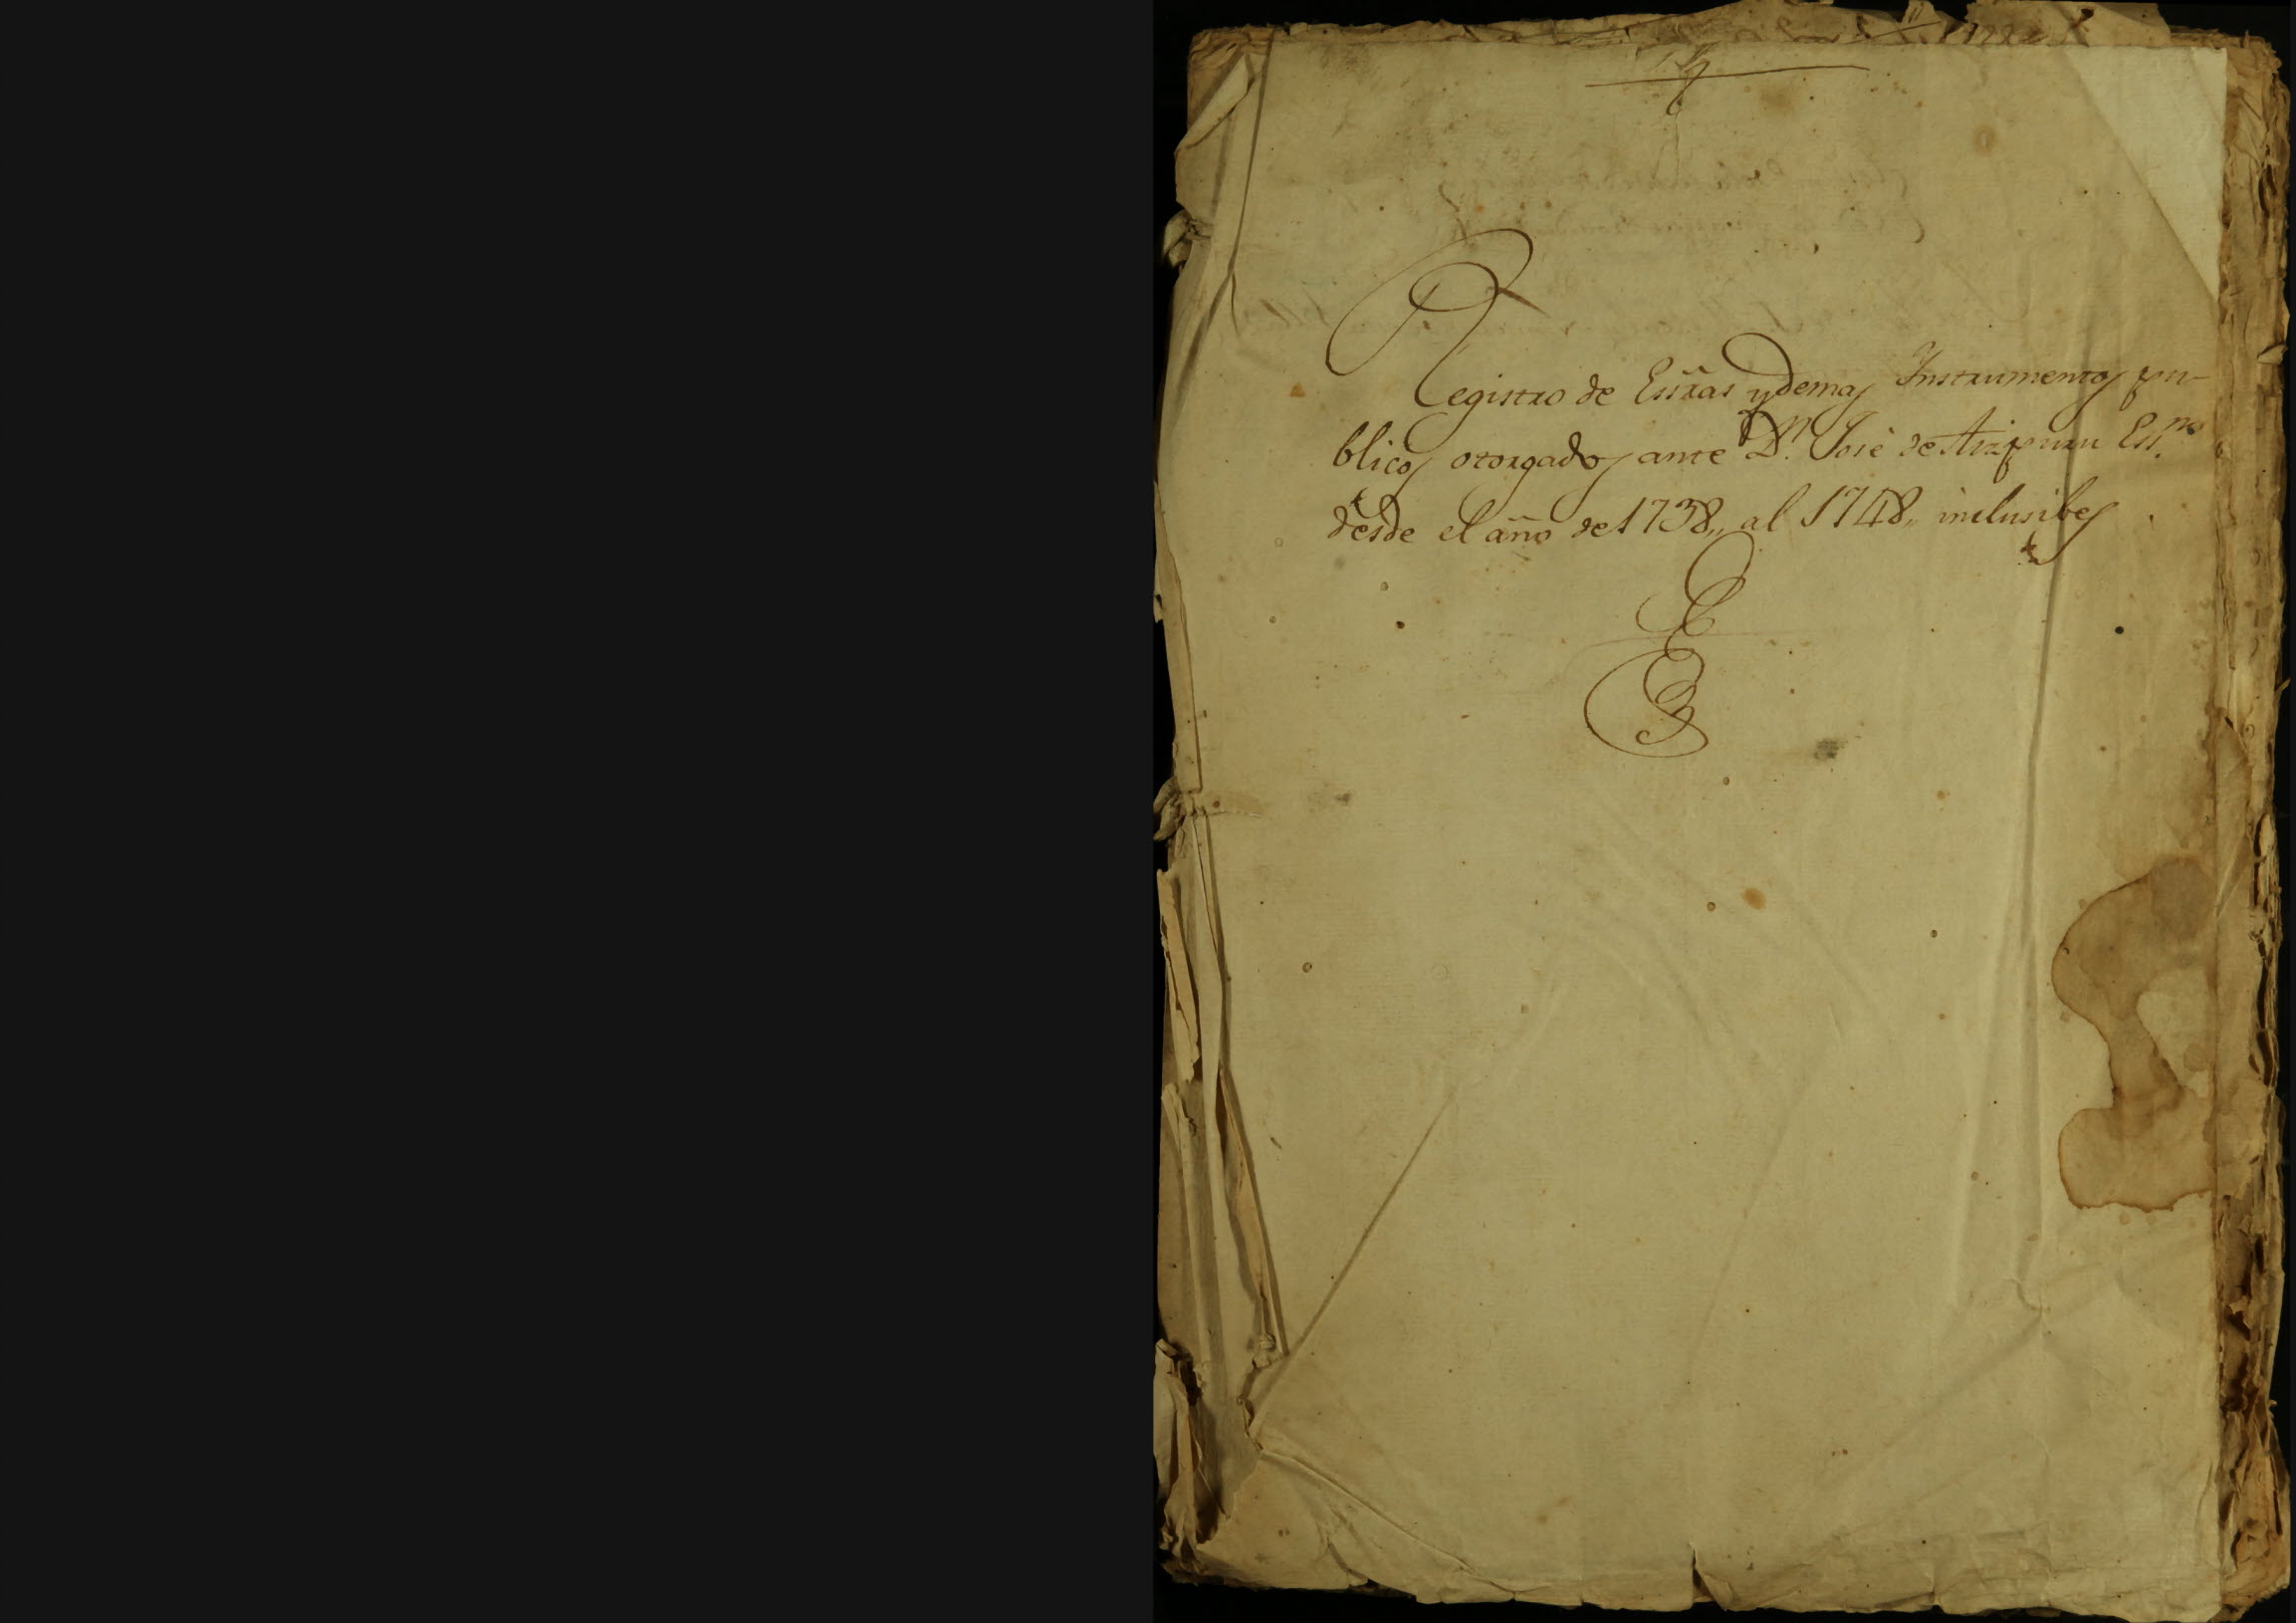 Registro de Essras y demas Instrumentos pu-
blicos otorgados ante Dn. José de Aizpuru Essno
desde el año de 1738,, al 1748,, inclusibes